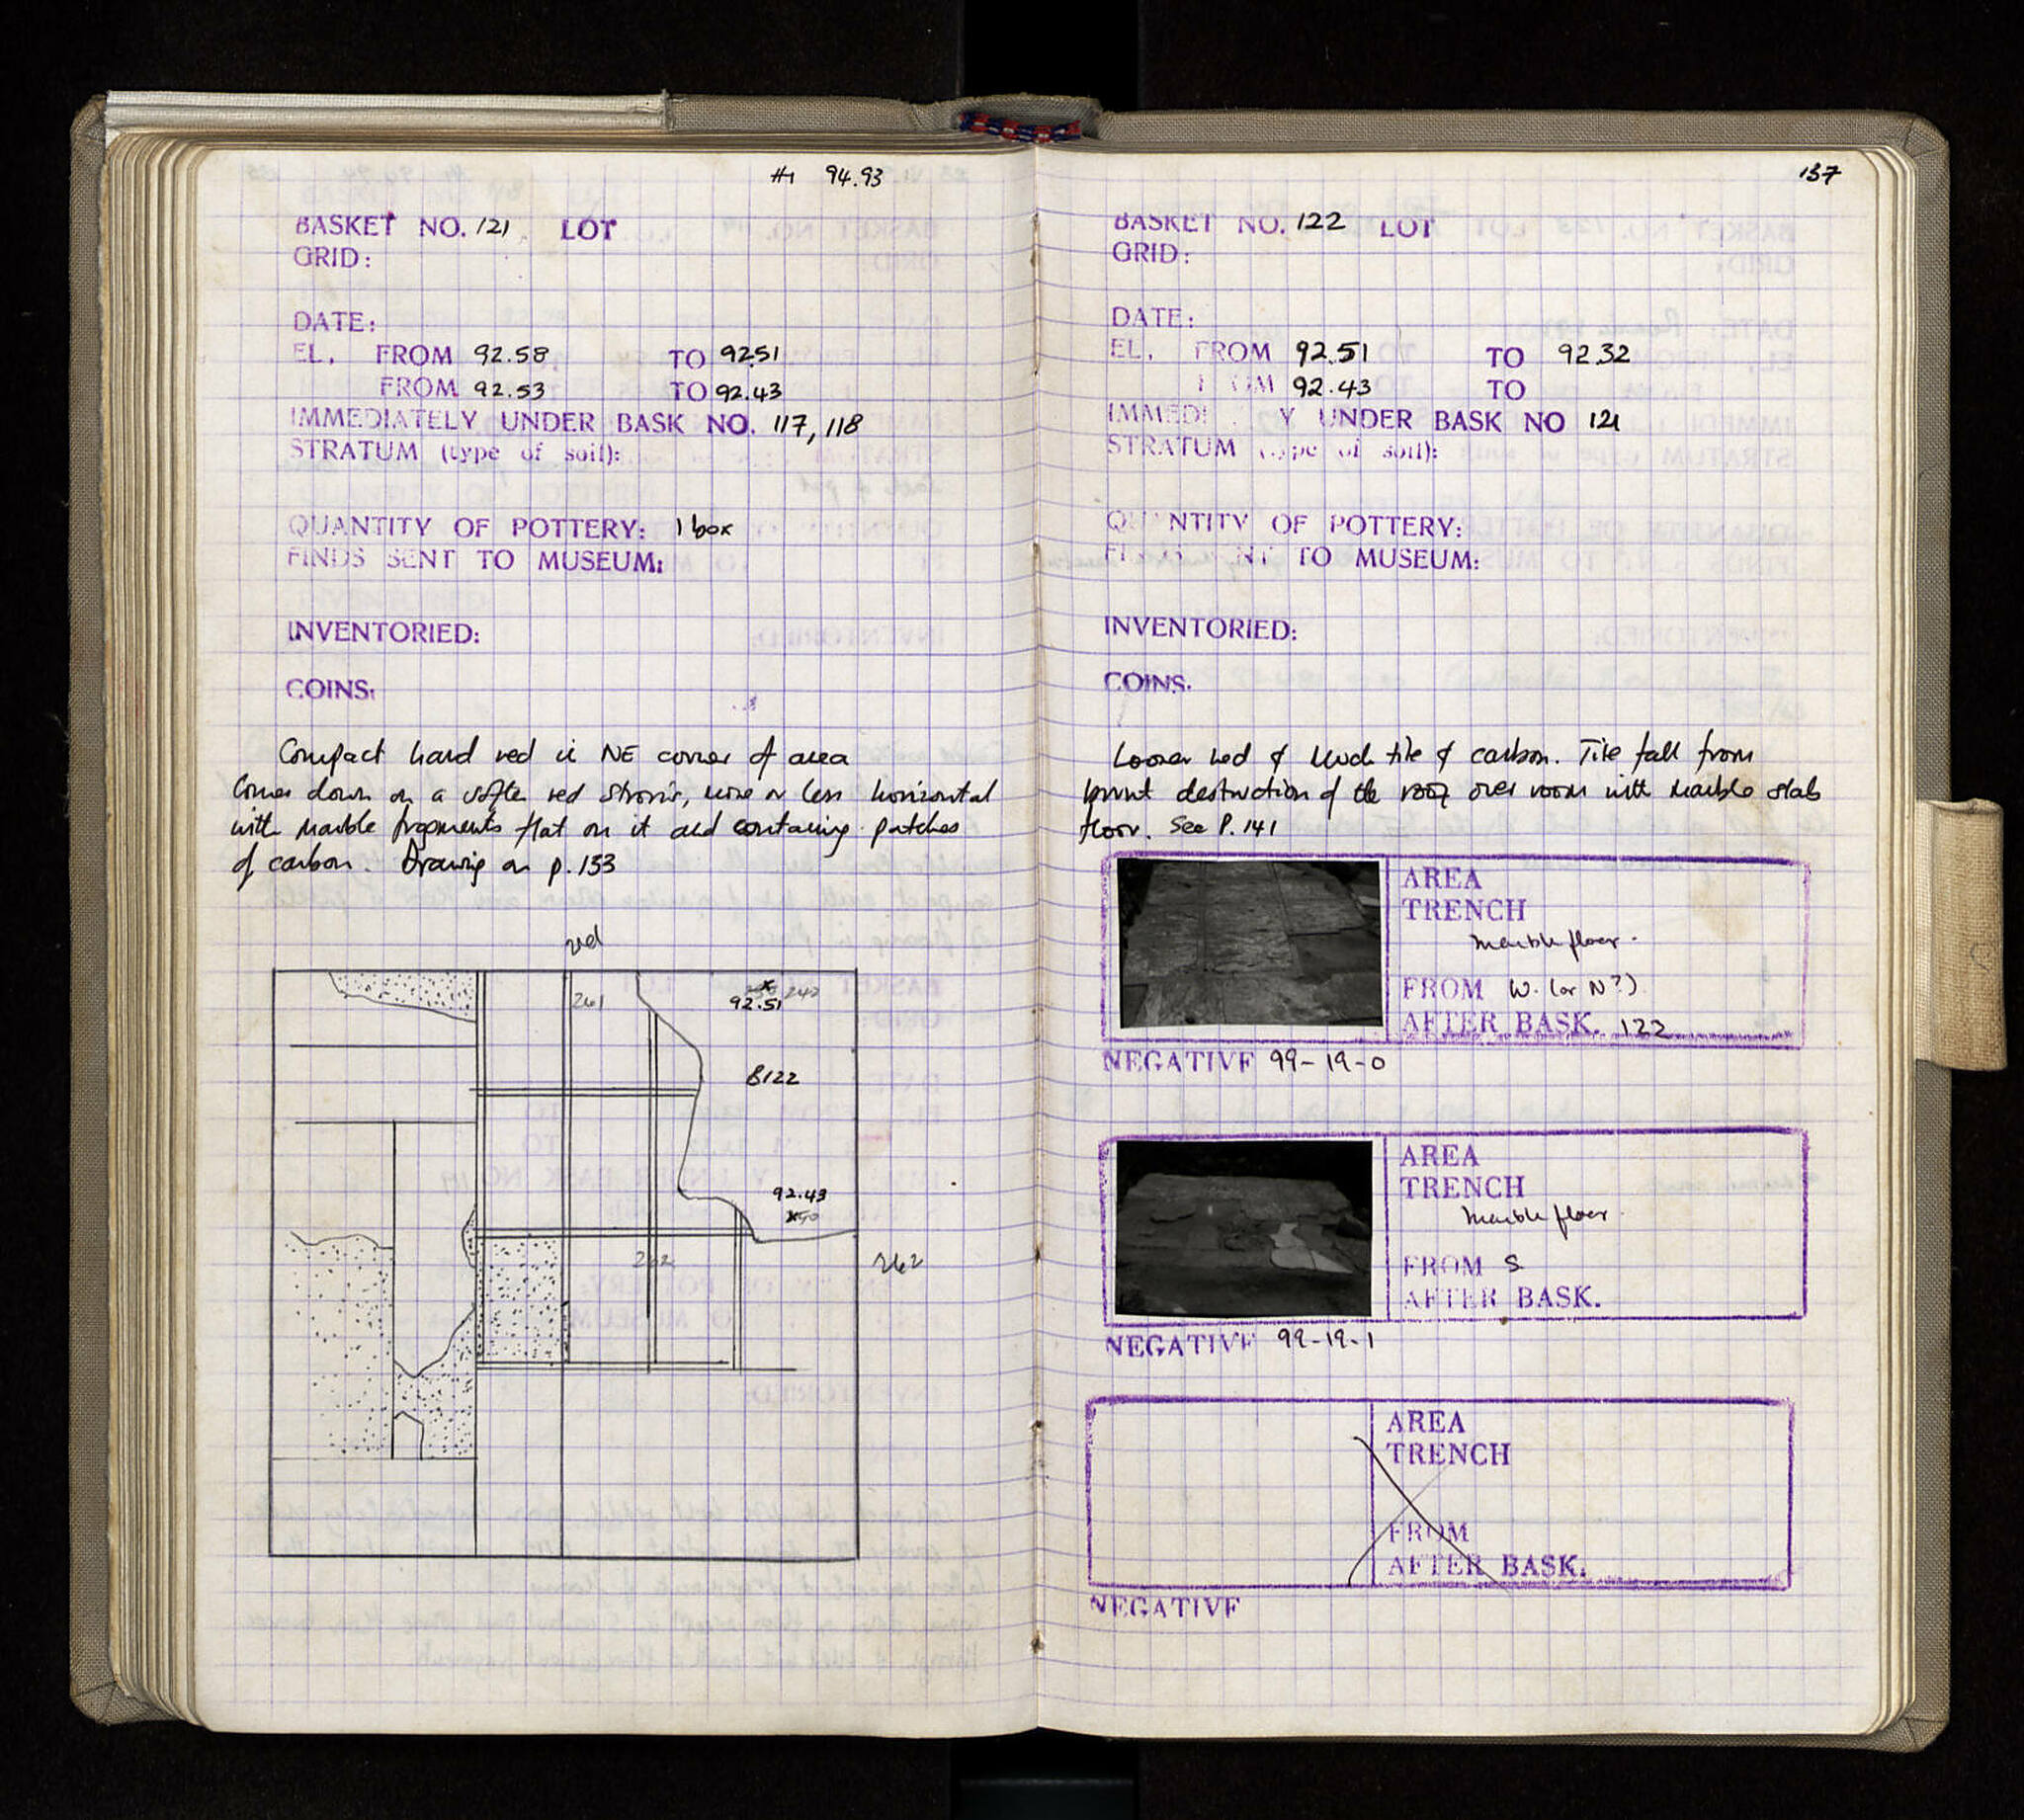 #1 94.93
BASKET NO. 121 LOT
GRID:
DATE:
EL. FROM 92.58 TO 92.51
FROM 92.53 TO 92.43
IMMEDIATELY UNDER BASK NO. 117, 118
STRATUM (type of soil):
QUANTITY OF POTTERY: 1 box
FINDS SENT TO MUSEUM:
INVENTORIED:
COINS:
Compact hard red in NE corner of area
Comes down on a softer red stratum, more or less horizontal
with marble fragments flat on it and containing patches
of carbon. Drawing on p. 133
red
261
242
92.51
B122
92.43
262
262
137
BASKET NO. 122 LOT
GRID:
DATE:
EL. FROM 92.51 TO 92.32
FROM 92.43 TO
IMMEDI Y UNDER BASK NO 121
STRATUM (type of soil):
QU NTITY OF POTTERY:
FINDS ENT TO MUSEUM:
INVENTORIED:
COINS.
Looser red & much tile & carbon. Tile fall from
burnt destruction of the roof over room with marble slab
floor. See P. 141
AREA
TRENCH
Marble floor.
FROM W. (or N?)
AFTER BASK. 122
NEGATIVE 99-19-0
AREA
TRENCH
Marble floor.
FROM S
AFTER BASK.
NEGATIVE 99-19-1
AREA
TRENCH
FROM
AFTER BASK.
NEGATIVE